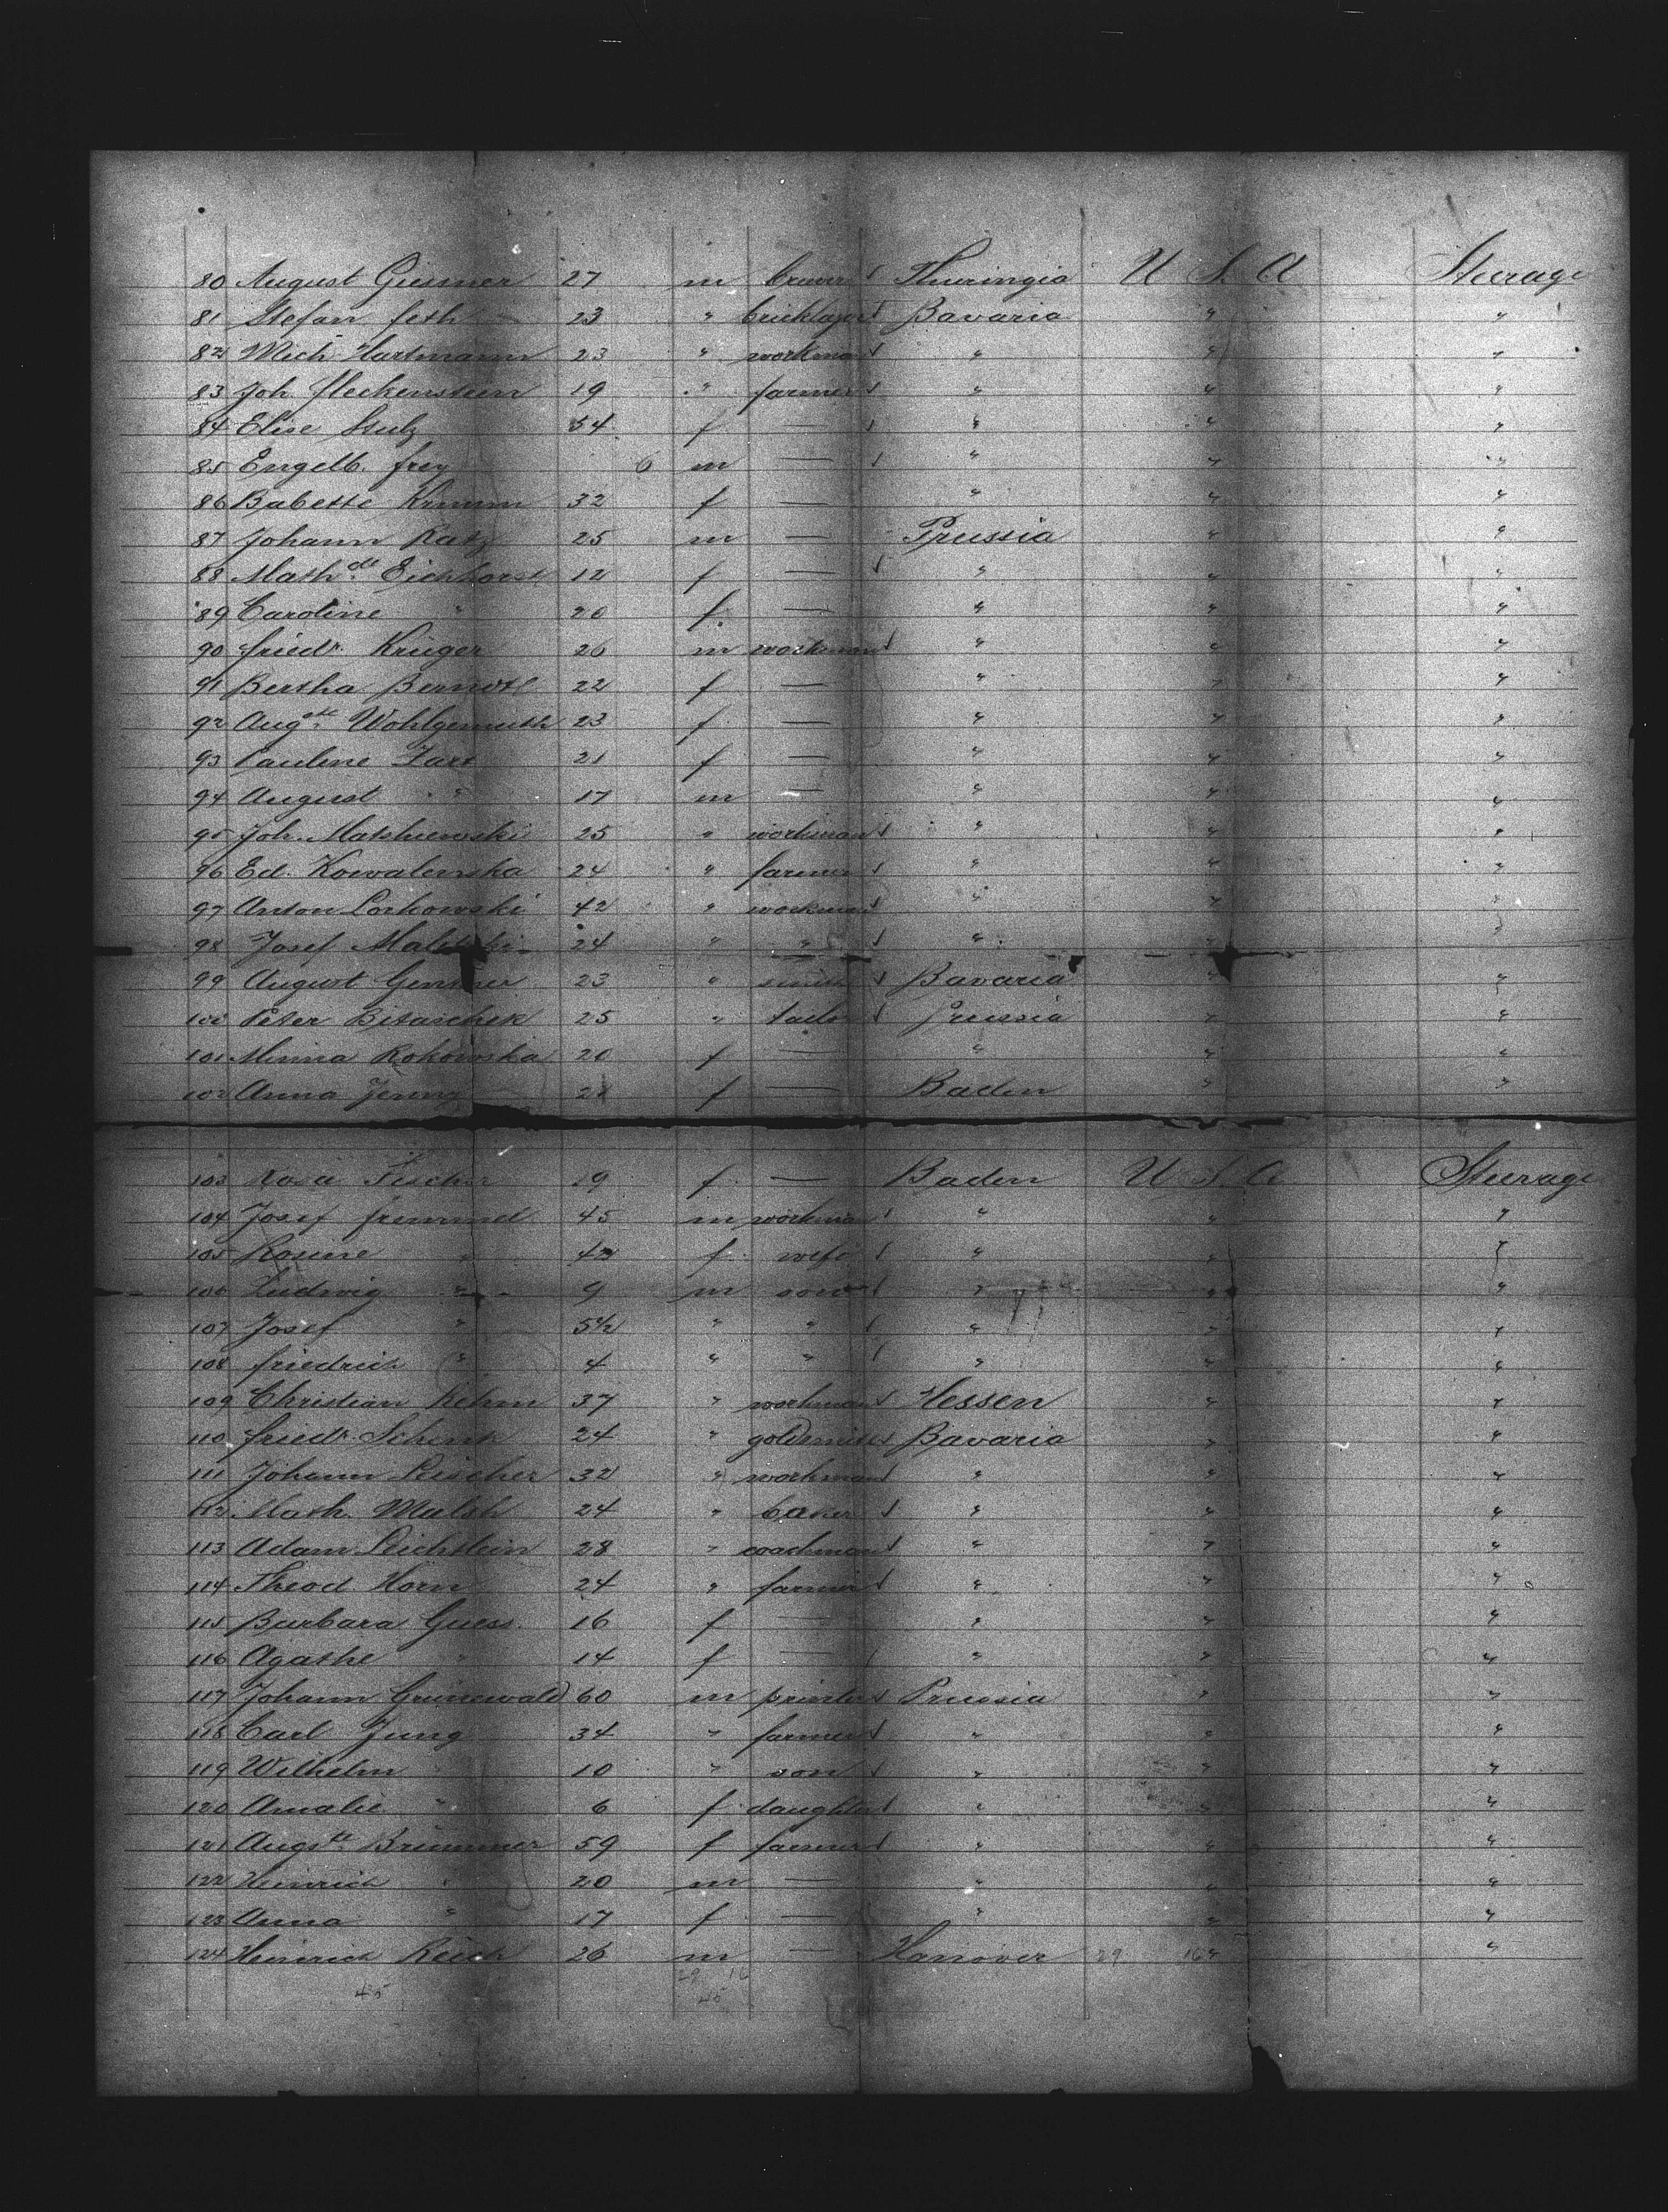 80 August Giessner 27 m brewer Thuringia U S. A Steerage
81 Stefan Feth 23 " bricklayer Bavaria " "
82 Mich. Hartmann 23 " workman " " "
83 Joh. Fleckenstein 19 " farmer " " "
84 Elise Stulz 54 f — " " "
85 Engelb. Frey 6 m — " " "
86 Babette Krumm 32 f — " " "
87 Johann Ratz 25 m — Prussia " "
88 Math.de Eichhorst 12 f — " " "
89 Caroline " 20 f. — " " "
90 Friedr. Krüger 26 m workman " " "
91 Bertha Berndt 22 f — " " "
92 Aug.ste Wohlgemuth 23 f — " " "
93 Pauline 21 f — " " "
94 August " 17 m — " " "
95 Joh. Mathiewski 25 " workman " " "
96 Ed. Kowalenska 24 " farmer " " "
97 Anton Lorkowski 42 " workman " " "
98 Josef 24 " " " " "
99 August 23 " smith Bavaria " "
100 Peter Bitaschek 25 " tailor Prussia " "
101 Minna Rokowska 20 f — " " "
102 Anna Jenny 21 f — Baden " "
103 Rosa Fischer 19 f. — Baden U S. A Steerage
104 Josef Freimund 45 m workman " " "
105 Rosine " 42 f. wife " " "
106 Ludwig " 9 m son " " "
107 Josef " 5½ " " " " "
108 Friedrich " 4 " " " " "
109 Christian Rehm 37 " workman Hessen " "
110 Friedr. Schenk 24 " goldsmith Bavaria " "
111 Johann Leischer 32 " workman " " "
112 Math. Mulsh 24 " baker " " "
113 Adam Leichtlein 28 " coachman " " "
114 Theod. Horn 24 " farmer " " "
115 Barbara Guess 16 f — " " "
116 Agathe " 14 f — " " "
117 Johann Grünewald 60 m printer Prussia " "
118 Carl Jung 34 " farmer " " "
119 Wilhelm " 10 " son " " "
120 Amalie " 6 f daughter " " "
121 Augste Brümmer 59 f farmer " " "
122 Heinrich " 20 m — " " "
123 Anna " 17 f — " " "
124 Heinrich Reich 26 m — Hanover 29 16 " "
45 29 16
45